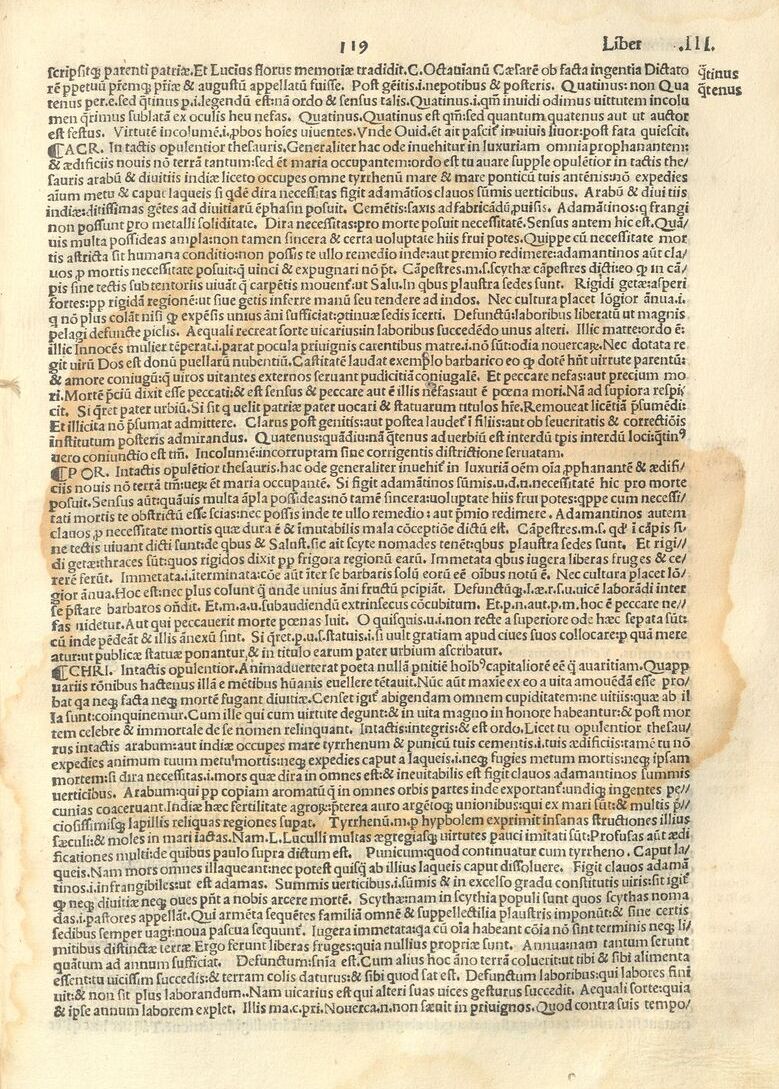 119
Liber .III.
scripsitq̃ parenti patriæ. Et Lucius florus memoriæ tradidit. C. Octauianũ Cæsarẽ ob facta ingentia Dictato
q̃tinus
q̃tenus
rẽ ppetuũ prẽmq̃; pr̃iæ & augustũ appellatũ fuisse. Post gẽitis .i. nepotibus & posteris. Quatinus: non Qua
tenus per.e. sed q̃tinus p.i. legendũ est: nã ordo & sensus talis. Quatinus .i. qm̃ inuidi odimus uirtutem incolu
men q̃rimus sublatã ex oculis heu nefas. Quatinus. Quatinus est qm̃: sed quantum quatenus aut ut auctor
est festus. Virtutẽ incolumẽ .i. ꝓbos hoĩes uiuentes. Vnde Ouid. ẽt ait pascit̃ in uiuis liuor: post fata quiescit.
¶ACR. In tactis opulentior thesauris. Generaliter hac ode inuehitur in luxuriam omnia prophanantem:
& ædificiis nouis nõ terrã tantum: sed ẽt maria occupantem: ordo est tu auare supple opulẽtior in tactis the/
sauris arabũ & diuitiis indiæ liceto occupes omne tyrrhenũ mare & mare ponticũ tuis antẽnis: nõ expedies
aĩum metu & caput laqueis si qdẽ dira necessitas figit adamãtinos clauos sũmis uerticibus. Arabũ & diuitiis
indiæ: ditissimas gẽtes ad diuitiarũ ẽphasin posuit. Cemẽtis: saxis ad fabricãdũ, puisis. Adamãtinos: q frangi
non possunt pro metalli soliditate. Dira necessitas: pro morte posuit necessitatẽ. Sensus autem hic est. Quã/
uis multa possideas ampla: non tamen sincera & certa uoluptate hiis frui potes. Quippe cũ necessitate mor
tis astricta sit humana conditio: non possis te ullo remedio inde: aut premio redimere: adamantinos aũt cla/
uos, ꝓ mortis necessitate posuit: q̃ uinci & expugnari nõ pt̃. Cãpestres. m. s. scythæ cãpestres dicti: eo ꝙ in cã/
pis sine tectis sub tentoriis uiuãt q̃ carpẽtis mouent̃. ut Salu. In qbus plaustra sedes sunt. Rigidi getæ: asperi
fortes: ꝓp rigidã regionẽ: ut siue getis inferre manũ seu tendere ad indos. Nec cultura placet lõgior ãnua .i.
q nõ plus colãt nisi ꝙ expẽsis unius ãni sufficiat: ꝓtinuæ sedis ĩcerti. Defunctũ: laboribus liberatũ ut magnis
pelagi defuncte piclis. Aequali recreat sorte uicarius: in laboribus succedẽdo unus alteri. Illic matre: ordo ẽ:
illic Innocẽs mulier tẽperat .i. parat pocula priuignis carentibus matre .i. nõ sũt: odia nouercaꝝ. Nec dotata re
git uirũ Dos est donũ puellarũ nubentiũ. Castitatẽ laudat exemplo barbarico eo ꝙ dotẽ hñt uirtute parentũ:
& amore coniugũ: q̃ uiros uitantes externos seruant pudicitiã coniugalẽ. Et peccare nefas: aut precium mo
ri. Mortẽ p̃ciũ dixit esse peccati: & est sensus & peccare aut ẽ illis nefas: aut ẽ pœna mori. Nã ad supiora respi/
cit. Si q̃ret pater urbiũ. Si sit q uelit patriæ pater uocari & statuarum titulos hr̃e. Remoueat licẽtiã p̃sumẽdi:
Et illicita nõ p̃sumat admittere. Clarus post genitis: aut postea laudet̃ ĩ filiis: aut ob seueritatis & correctiõis
institutum posteris admirandus. Quatenus: quãdiu: nã q̃tenus aduerbiũ est interdũ tpis interdũ loci: q̃tin9
uero coniunctio est tm̃. Incolumẽ: incorruptam sine corrigentis districtione seruatam.
¶POR. Intactis opulẽtior thesauris. hac ode generaliter inuehit̃ in luxuriã oẽm oĩa ꝓphanantẽ & ædifi/
ciis nouis nõ terrã tm̃: ueꝝ ẽt maria occupantẽ. Si figit adamantinos sũmis. u. d. n. necessitatẽ hic pro morte
posuit. Sensus aũt: quãuis multa ãpla possideas: nõ tamẽ sincera: uoluptate hiis frui potes: qppe cum necessi/
tati mortis te obstrictũ esse scias: nec possis inde te ullo remedio: aut p̃mio redimere. Adamantinos autem
clauos ꝓ necessitate mortis quæ dura ẽ & ĩmutabilis mala cõceptiõe dictũ est. Cãpestres. m. s. qd̃ ĩ cãpis si/
ne tectis uiuant dicti sunt: de qbus & Salust. sic ait scyte nomades tenẽt: qbus plaustra sedes sunt. Et rigi//
di getæ: thraces sũt: quos rigidos dixit ꝓp frigora regionũ earũ. Immetata qbus iugera liberas fruges & ce/
rerẽ ferũt. Immetata .i. iterminata: cõe aũt iter se barbaris solũ eorũ eẽ oĩbus notũ ẽ. Nec cultura placet lõ/
gior ãnua. Hoc est: nec plus colunt q̃ unde unius ãni fructũ pcipiãt. Defunctũq̃. l. æ. r. s. u. uicẽ laborãdi inter
se p̃stare barbaros oñdit. Et. m. a. u. subaudiendũ extrinsecus cõcubitum. Et. p. n. aut. p. m. hoc ẽ peccare ne//
fas uidetur. Aut qui peccauerit morte pœnas luit. O quisquis. u. i. non recte a superiore ode hæc sepata sũt:
cũ inde pẽdeãt & illis ãnexũ sint. Si q̃ret. p. u. s. status .i. si uult gratiam apud ciues suos collocare: ꝓ quã mere
atur: ut publicæ statuæ ponantur, & in titulo earum pater urbium ascribatur.
¶CHRI. Intactis opulentior. Animaduerterat poeta nullã pnitiẽ hoĩb9 capitaliorẽ eẽ q̃ auaritiam. Quapp
uariis rõnibus hactenus illã e mẽtibus hũanis euellere tẽtauit. Nũc aũt maxie ex eo a uita amouẽdã esse pro/
bat qa neq̃; facta neq̃; mortẽ fugant diuitiæ. Censet igit̃ abigendam omnem cupiditatem: ne uitiis: quæ ab il
la sunt: coinquinemur. Cum ille qui cum uirtute degunt: & in uita magno in honore habeantur: & post mor
tem celebre & immortale de se nomen relinquant. Intactis: integris: & est ordo. Licet tu opulentior thesau/
rus intactis arabum: aut indiæ occupes mare tyrrhenum & punicũ tuis cementis .i. tuis ædificiis: tamẽ tu nõ
expedies animum tuum metu mortis: neq̃; expedies caput a laqueis .i. neq̃; fugies metum mortis: neq̃; ipsam
mortem: si dira necessitas .i. mors quæ dira in omnes est: & ineuitabilis est figit clauos adamantinos summis
uerticibus. Arabum: qui ꝓp copiam aromatũ q̃ in omnes orbis partes inde exportant̃: undiq̃; ingentes pe/
cunias coaceruant. Indiæ hæc fertilitate agroꝝ: p̃terea auro argẽtoq̃; unionibus: qui ex mari sũt: & multis p̃//
ciosissimisq̃; lapillis reliquas regiones supat. Tyrrhenũ. m. p hypbolem exprimit insanas structiones illius
sæculi: & moles in mari iactas. Nam. L. Luculli multas ægregiasq̃; uirtutes pauci imitati sũt: Profusas aũt ædi
ficationes multi: de quibus paulo supra dictum est. Punicum: quod continuatur cum tyrrheno. Caput la/
queis. Nam mors omnes illaqueant: nec potest quisq̃ ab illius laqueis caput dissoluere. Figit clauos adamã
tinos .i. infrangibiles: ut est adamas. Summis uerticibus .i. sũmis & in excelso gradu constitutis uiris: sit igit̃
ꝙ neq̃; diuitiæ neq̃; oues pñt a nobis arcere mortẽ. Scythæ: nam in scythia populi sunt quos scythas noma
das .i. pastores appellãt. Qui armẽta sequẽtes familiã omnẽ & suppellectilia plaustris imponũt: & sine certis
sedibus semper uagi: noua pascua sequunt̃. Iugera immetata: qa cũ oĩa habeant cõia nõ sint terminis neq̃; li/
mitibus distinctæ terræ. Ergo ferunt liberas fruges: quia nullius propriæ sunt. Annua: nam tantum serunt
quãtum ad annum sufficiat. Defunctum: sñia est. Cum alius hoc ãno terrã coluerit: ut tibi & sibi alimenta
essent: tu uicissim succedis: & terram colis daturus: & sibi quod sat est. Defunctum laboribus: qui labores fini
uit: & non sit plus laborandum.. Nam uicarius est qui alteri suas uices gesturus succedit. Aequali sorte: quia
& ipse annum laborem explet. Illis ma. c. pri. Nouerca. n. non sæuit in priuignos. Quod contra suis tempo/